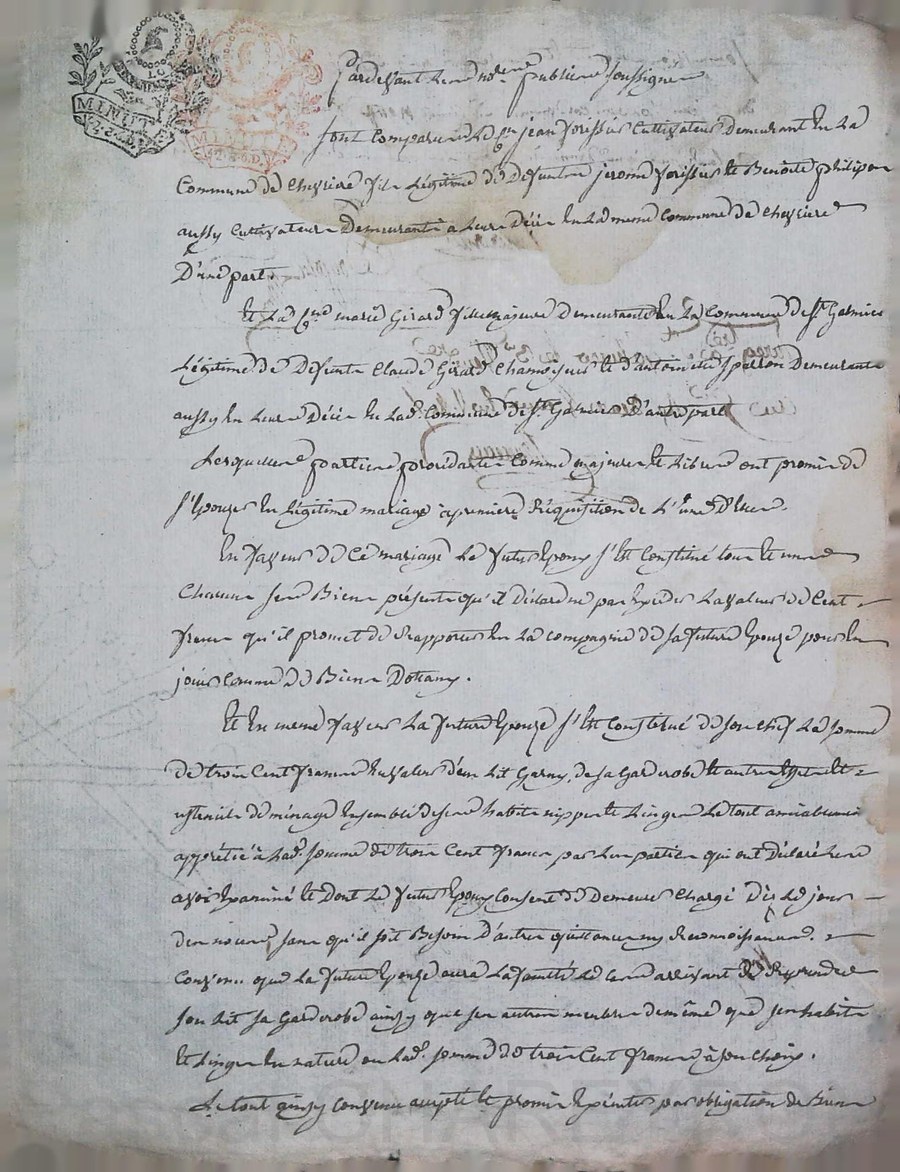 MINUT
Pardevant Les notres publics soussignes
sont Comparus Le Cen jean forissier Cultivateur Demeurant En La
Commune de Chevriere fils Légitime de Defuntes jerome forissier et Benoite philipon
aussy Cultivateurs Demeurants a Leurs Décès En La meme Commune de Chevrieres
D'une part.
Et La Cne marie Girard fille majeure Demeurante En La Commune de St Galmier
Légitime de Defunts Claude Girard et d'antoinette Demeurants
aussy En Leurs Décès En Lade Commune de St Galmier D'autre part
Lesquelles parties procedantes Comme majeures et Libres ont promis de
s'Epouser En Légitime mariage a premiere Requisition de L'une D'Elles.
En faveur de Ce mariage Le futur Epoux s'est Constitué tous et uns
Chacuns ses Biens présents qu'il Déclare La valeur de Cent
francs qu'il promet de Rapporter En La compagnie de sa future Epouze pour En
jouir Comme de Biens Dotaux.
Et En meme faveur La future Epouze s'est Constitué de son chef La somme
de trois Cent francs En valeur d'un Lit Garny, de sa Garderobe et autres Effets et
ustencils de ménage Ensemble de ses habits nippes et Linges Le tout amiablement
apprétié à Lade somme de trois Cent francs par Les parties qui ont Déclaré Les
avoir Examiné et Dont Le futur Epoux Consent de Demeurer Chargé Dès Le jour
des noces sans qu'il soit Besoin D'autre quittance ny Reconnoissance.
Convenu que La future Epouze aura La faculté Le Cas arrivant de Reprendre
son Lit sa Garderobe ainsy que ses autres meubles de même que ses habits
et Linges En nature ou Lade somme de trois Cent francs à son choix.
Le tout ainsy convenu accepté et promis Exécuter par obligation de Biens